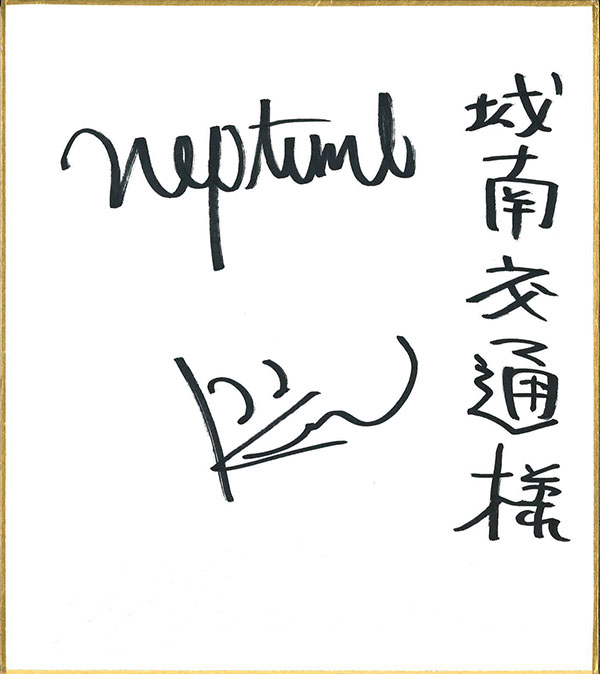 城南交通様
neptune